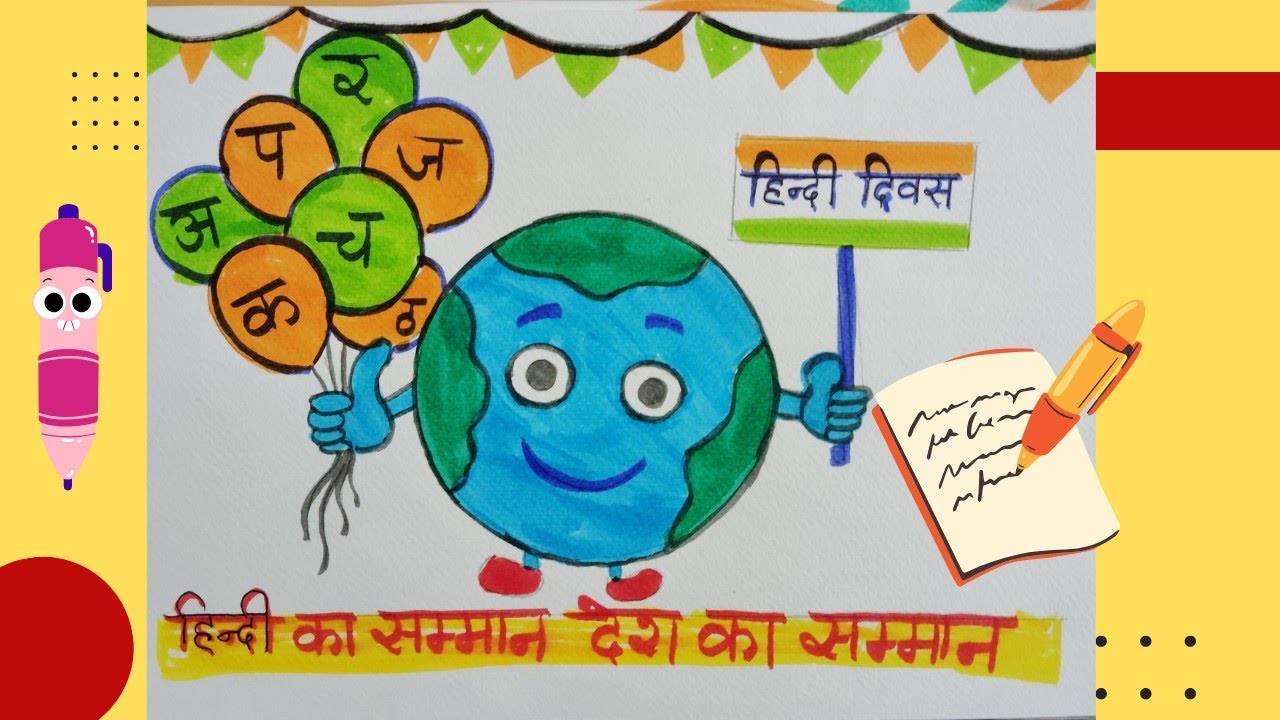 र
प ज
अ च
क
हिन्दी दिवस
हिन्दी का सम्मान देश का सम्मान